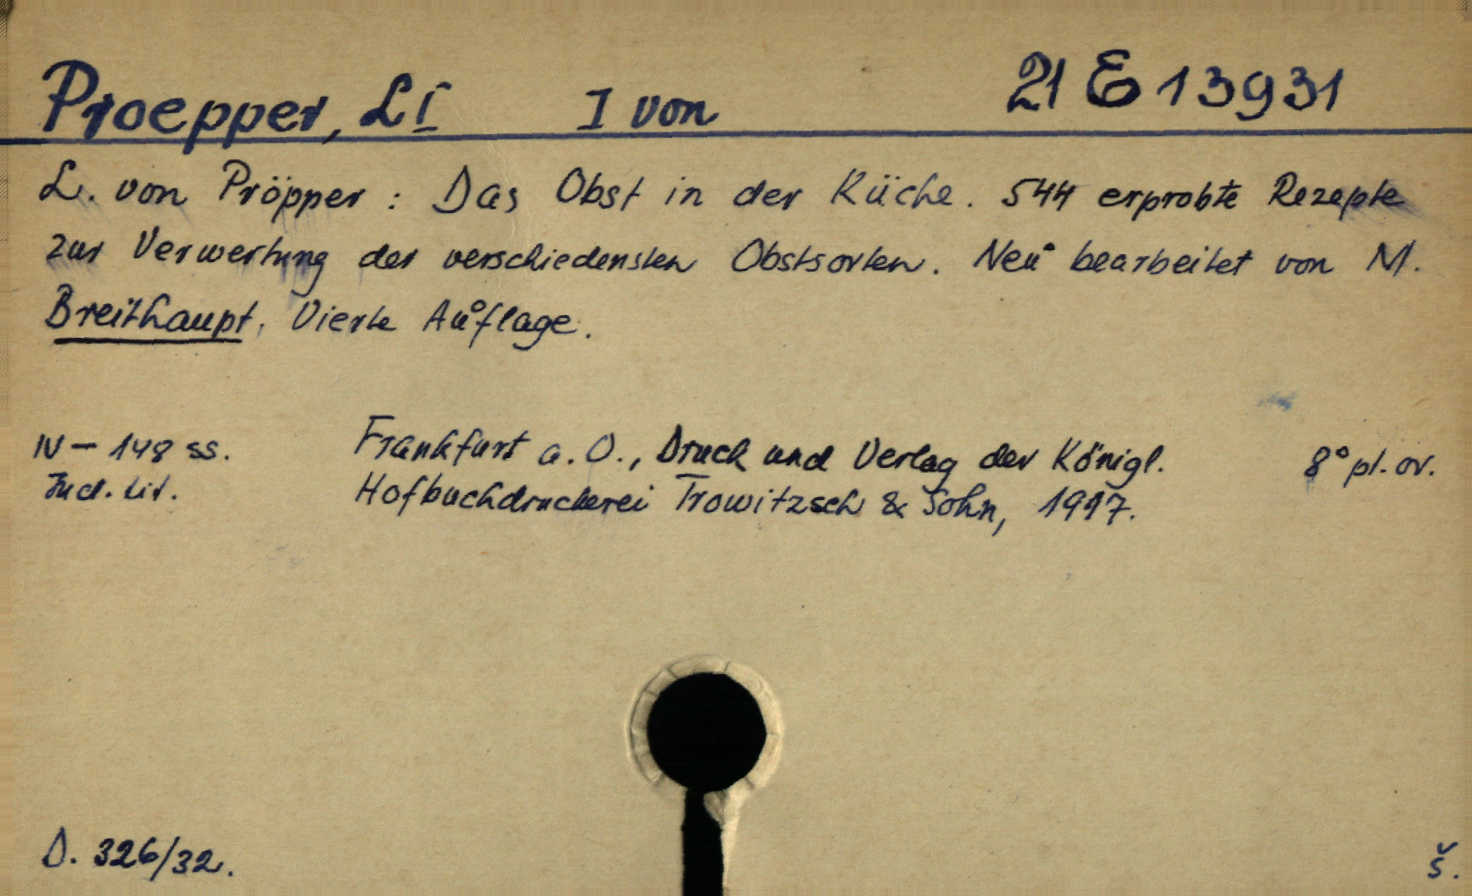 Proepper, L I I von 21 E 13931
L. von Pröpper : Das Obst in der Küche. 544 erprobte Rezepte
zur Verwertung der verschiedensten Obstsorten. Neu bearbeitet von M.
Breithaupt. Vierte Auflage.
IV – 148 ss. Frankfurt a. O., Druck und Verlag der Königl. 8° pl. or.
Ind. lit. Hofbuchdruckerei Trowitzsch & Sohn, 1917.
D. 326/32. š.